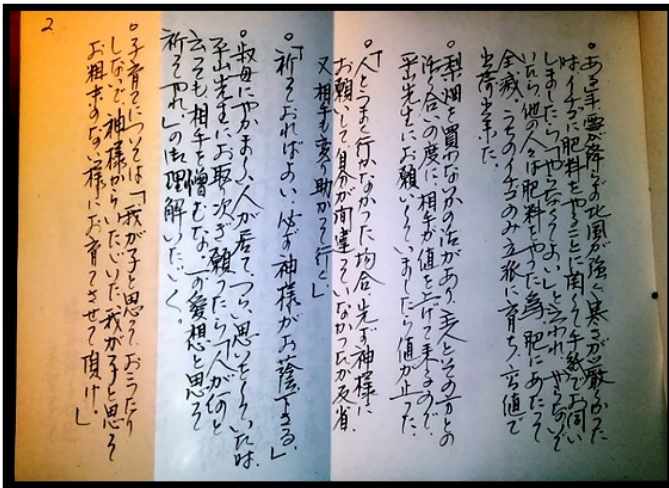 2
○ある年雪が降らず北風が強く寒さが厳しかった
時イチゴに肥料をやることに関して手紙でお伺い
しましたら「やらなくてよい」と言われ、やらないで
いたら他の人は肥料をやった為、肥にあたって
全滅、うちのイチゴのみ立派に育ち、高値で
出荷出来た。
○梨畑を買わないかの話があり、主人とその方との
話し合いの度に相手が値を上げて来るので、
平山先生にお願いしていましたら値が止った。
○「人とうまく行かなかった場合、先ず神様に
お願いして自分が間違っていなかったか反省、
又相手も変り助かって行く」
○「祈っておればよい、必ず神様がお蔭下さる。」
○叔母にやかましい人が居て、つらい思いをしていた時、
平山先生にお取次ぎ願ったら「人が何と
云っても相手を憎むな、一つの愛想と思って
祈ってやれ」の御理解いただく。
○子育てについては「我が子と思って、おこったり
しないで、神様からいただいた我が子と思って
お粗末のない様にお育てさせて頂け。」